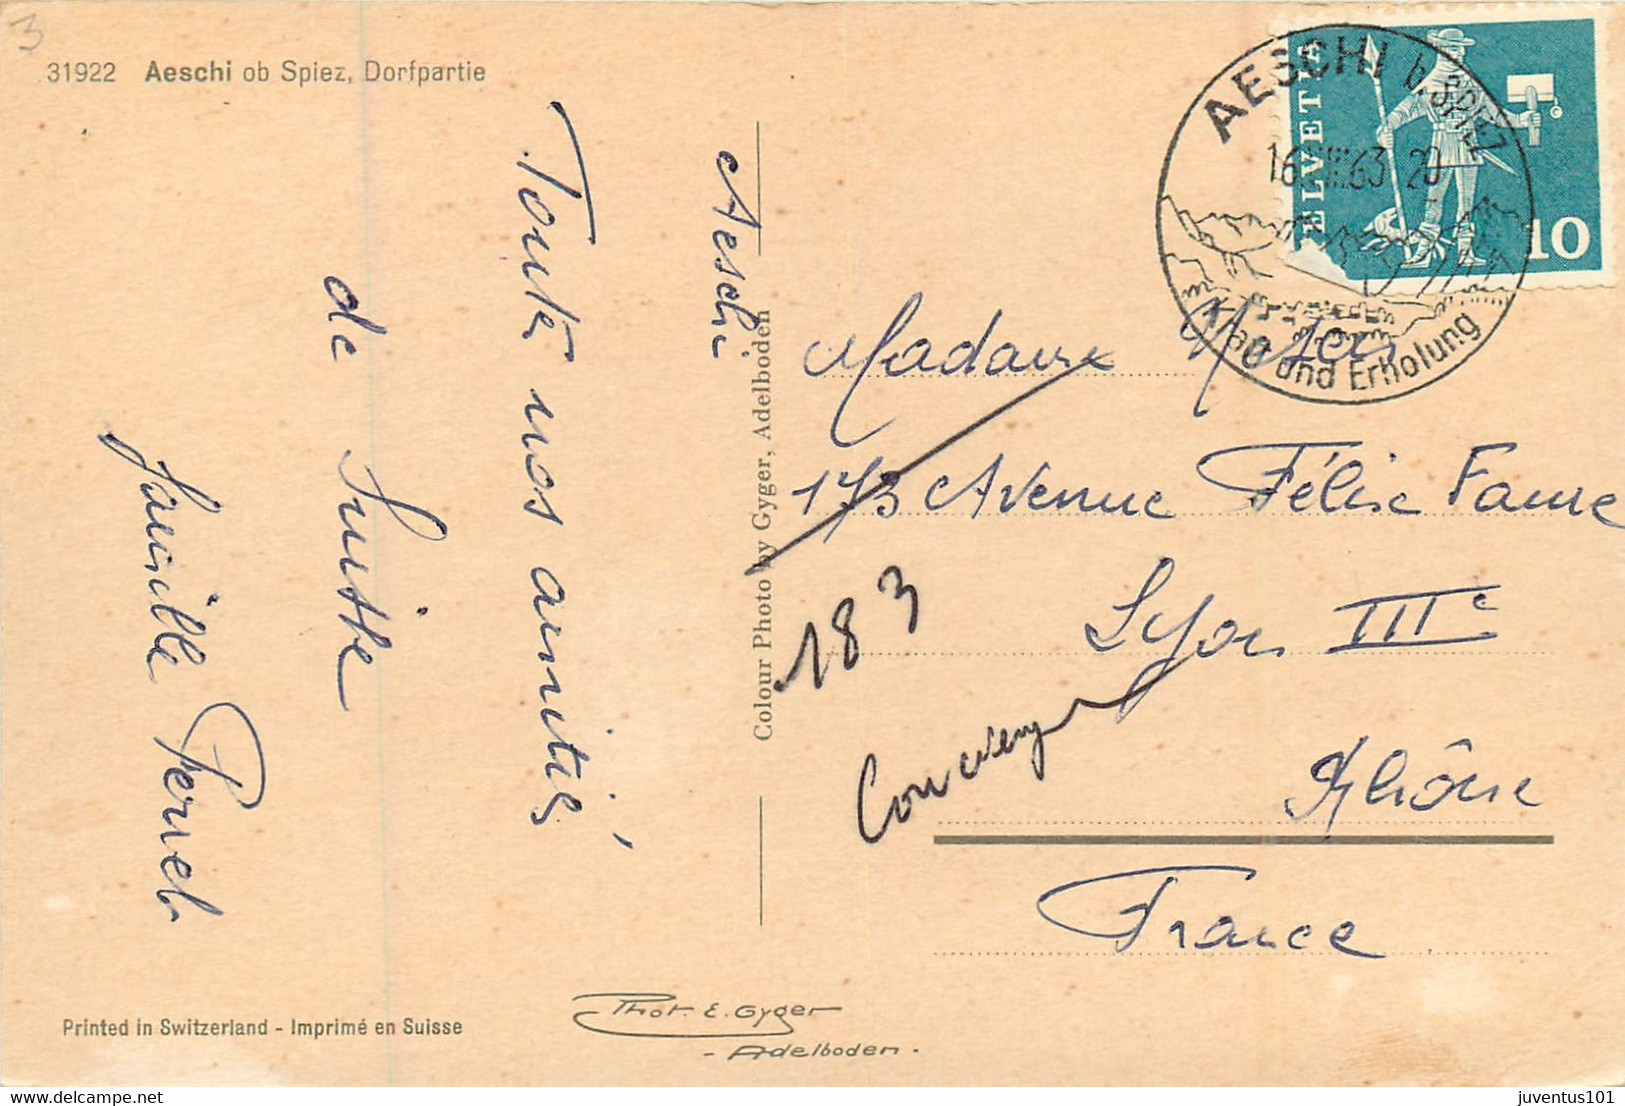 3
31922 Aeschi ob Spiez, Dorfpartie
Aeschi
Toutes nos amitiés
de Suisse
famille Perret
Colour Photo by Gyger, Adelboden
HELVETIA
10
AESCHI b. SPIEZ
16. 63 20
und Erholung
Madame
173 Avenue Félix Faure
183
Lyon IIIe
Rhône
France
Phot. E. Gyger
- Adelboden -
Printed in Switzerland - Imprimé en Suisse
delcampe.net
juventus101